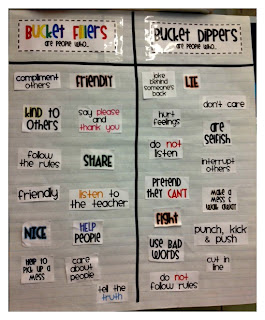 Bucket Fillers
are people who...
compliment
others
FRIENDLY
kind to
others
say please
and
thank you
follow
the rules
SHARE
friendly
listen to
the teacher
NICE
HELP
PEOPLE
help to
pick up a
mess
care
about
people
tell the
truth
Bucket Dippers
are people who...
joke
behind
someone's
back
LIE
don't care
hurt
feelings
are
selfish
do not
listen
interrupt
others
PRETEND
they CAN'T
make a
mess &
walk away
fight
USE BAD
WORDS
punch, kick
& push
cut in
line
do not
follow rules